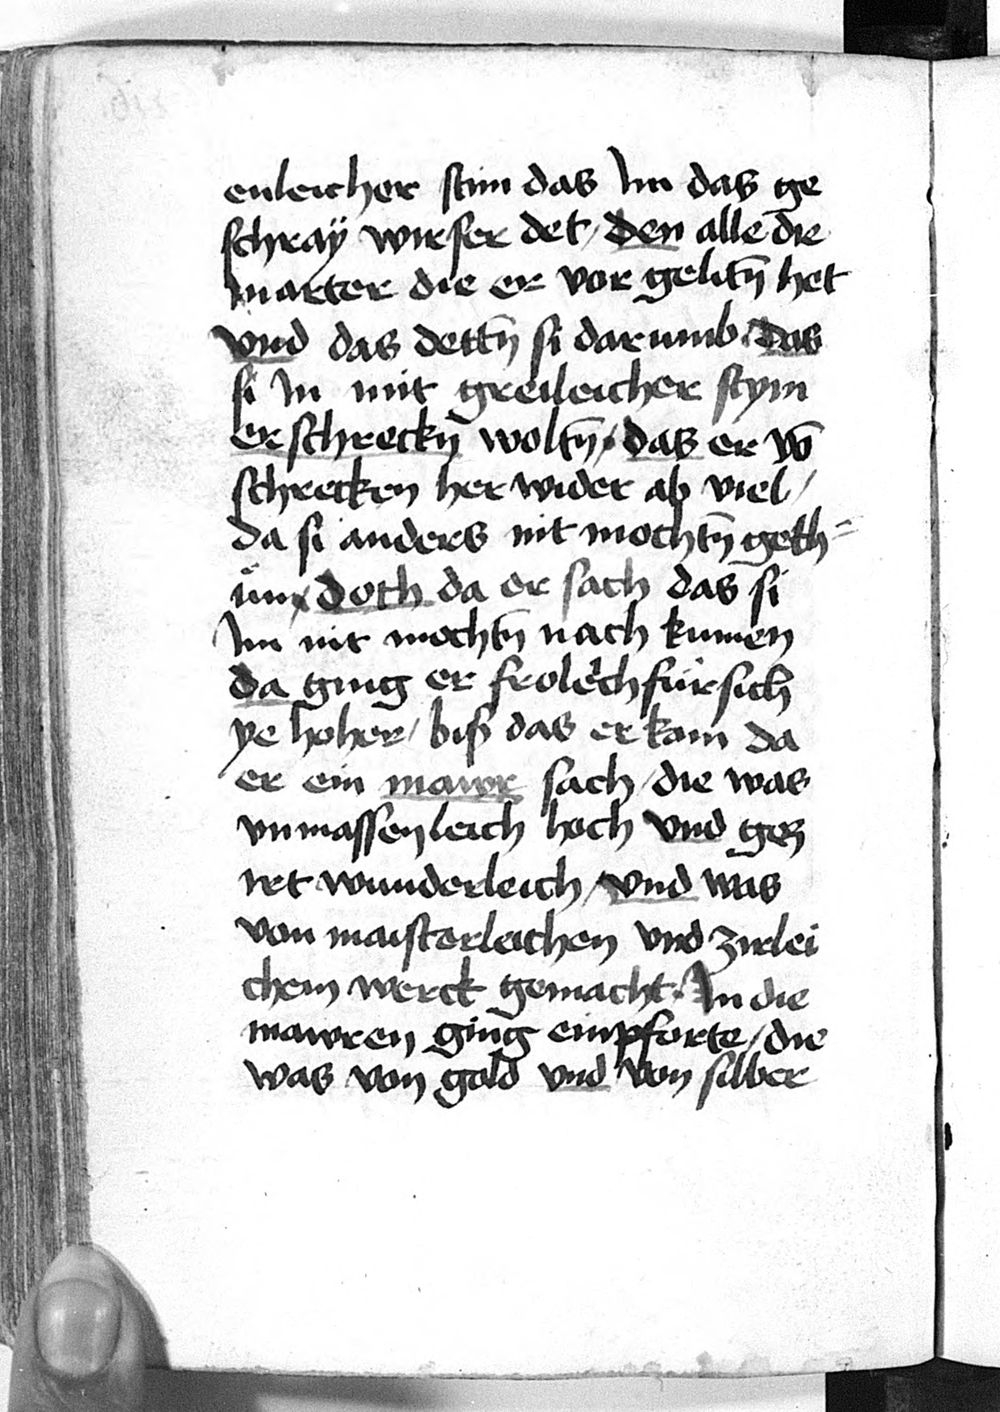 enleicher stim das Im das ge
schraÿ wirser det / den alle die
marter die er vor gelitn̄ het
vnd das dettn̄ si darumb. Das
si In mit greileicher stym
erschreckn̄ woltn̄ / das er vō
schrecken her wider ab viel /
da si anders nit mochtn̄ geth=
ün / doch da er sach das si
Im nit mochtn̄ nach kumen
da ging er frolech für sich
ye hoher / biß das er kom da
er ein mawr sach / die was
vnmassenleich hoch vnd gez
irt wunderleich / vnd was
von maisterleichen vnd zirlei
chem werck gemacht. In die
mawren ging ein pforte / die
was von gold vnd von silber